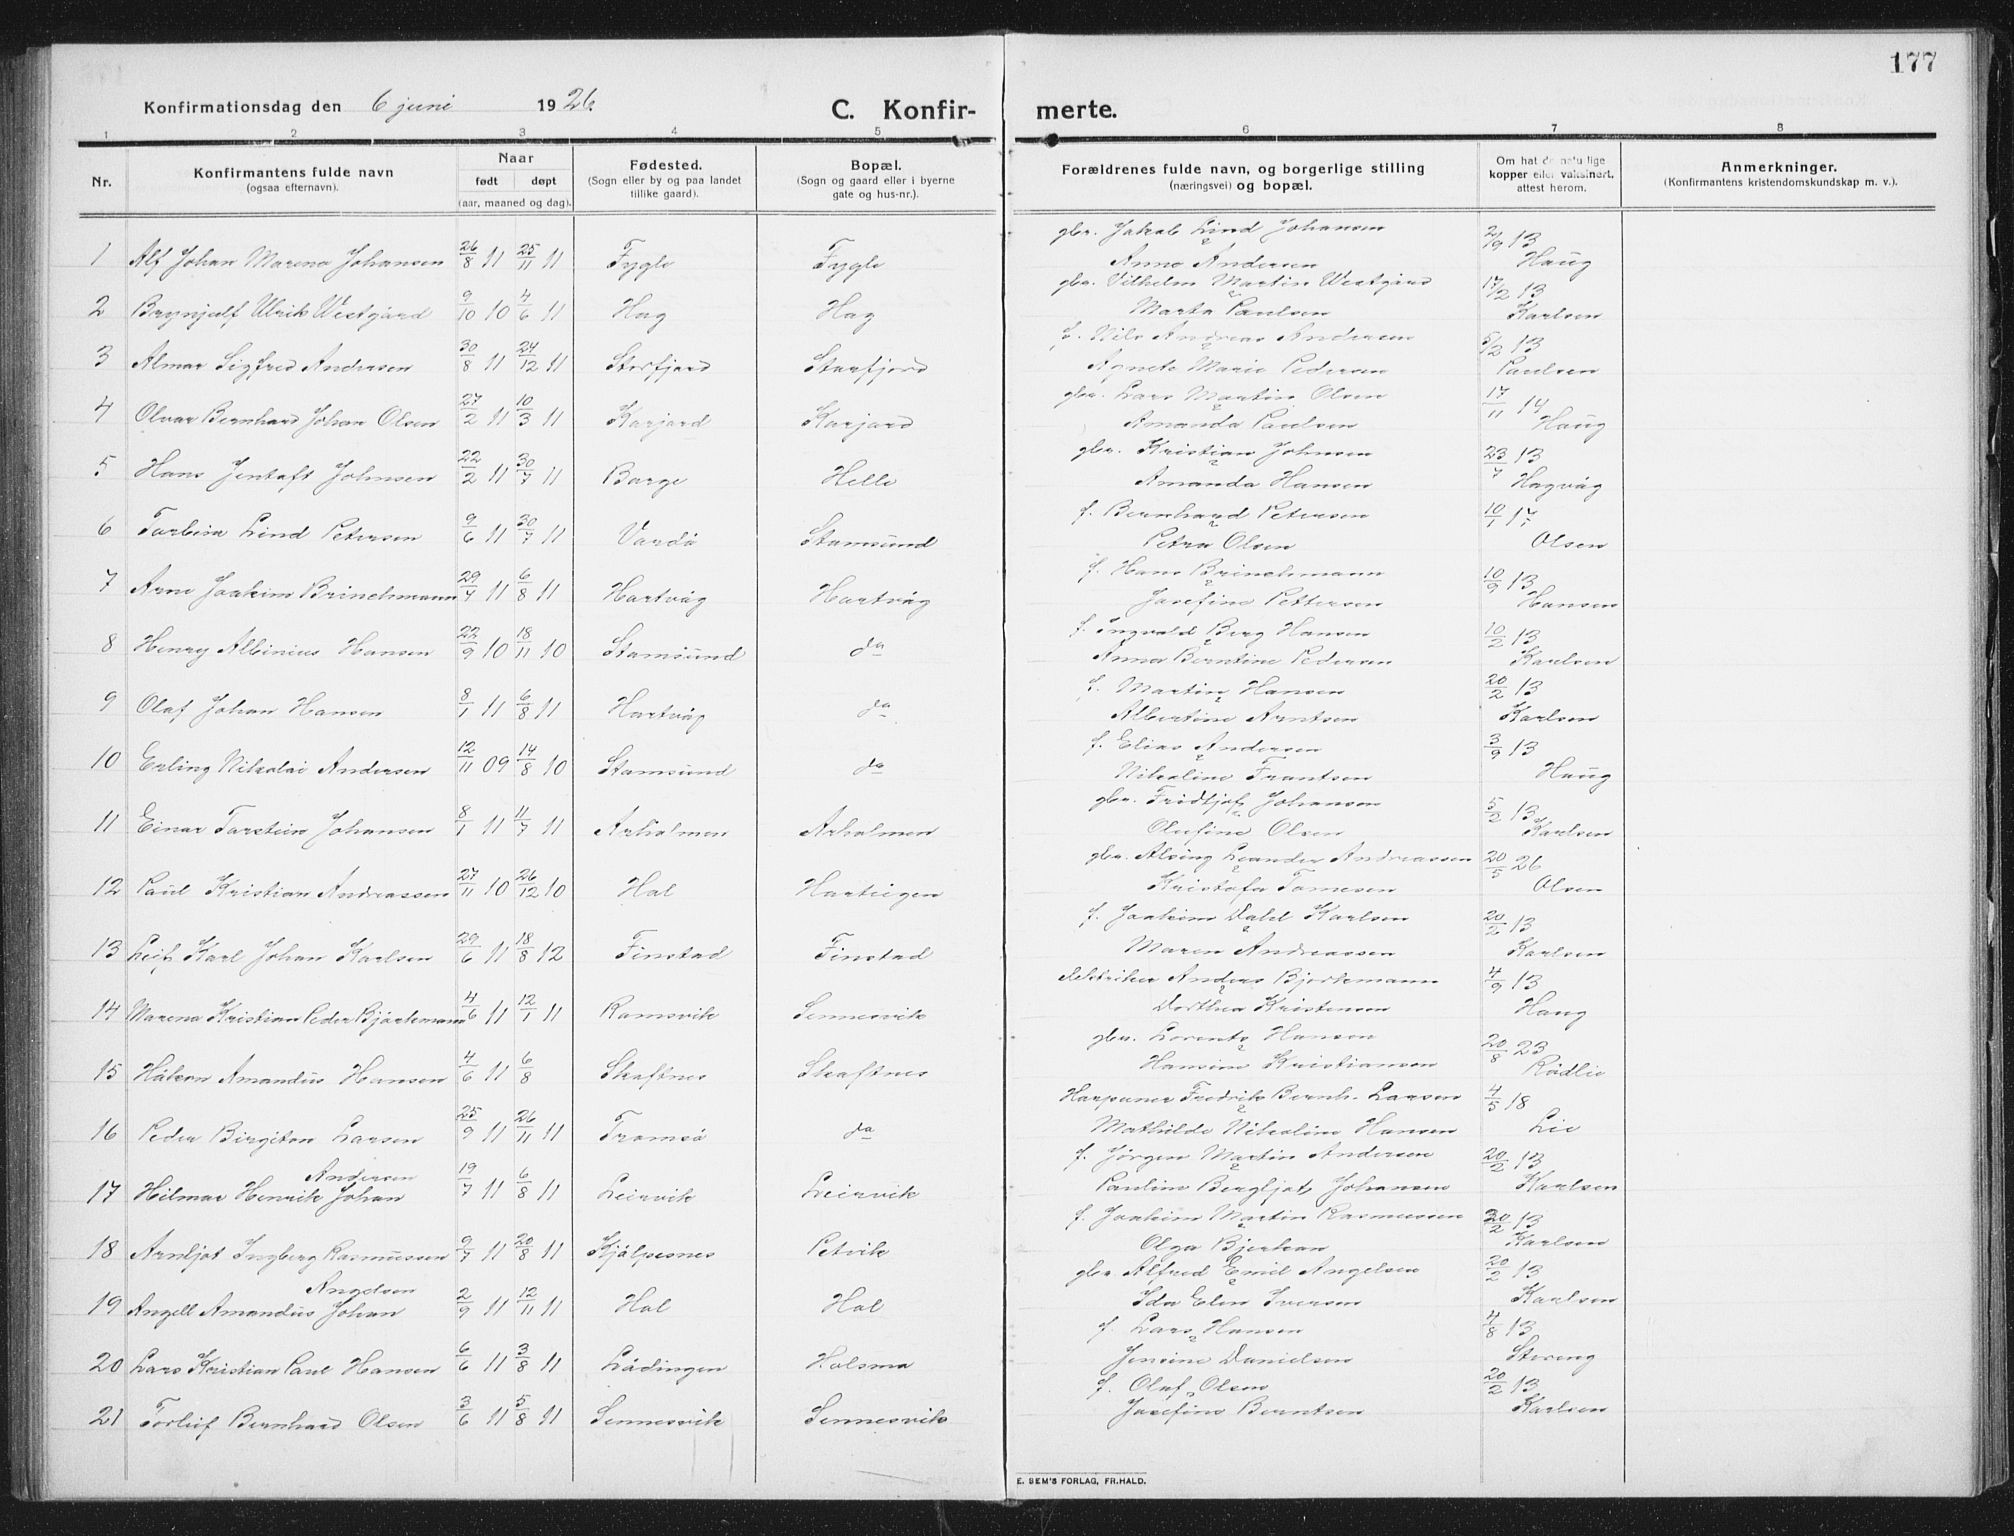 177
Konfirmationsdag den 6 juni 1926.
C. Konfir-
merte.
1 2 3 4 5 6 7 8
Nr.
Konfirmantens fulde navn
(ogsaa efternavn).
Naar
født døpt
(aar, maaned og dag).
Fødested.
(Sogn eller by og paa landet
tillike gaard).
Bopæl.
(Sogn og gaard eller i byerne
gate og hus-nr.).
Forældrenes fulde navn, og borgerlige stilling
(næringsvei) og bopæl.
Om hat de natu lige
kopper eller vaksinert,
attest herom.
Anmerkninger.
(Konfirmantens kristendomskundskap m. v.).
1 Alf Johan Mareno Johansen 26/8 11 25/11 11 Fygle Fygle gbr. Jakob Lind Johansen 2/9 13
Anne Andersen Haug
2 Brynjulf Ulrik Westgård 9/10 10 4/6 11 Hag Hag gbr. Vilhelm Martin Westgård 17/2 13
Marta Paulsen Karlsen
3 Almar Sigfred Andersen 30/8 11 24/12 11 Storfjord Storfjord f. Nils Andreas Andersen 5/2 13
Agnete Marie Pedersen Paulsen
4 Olvar Bernhard Johan Olsen 27/2 11 10/3 11 Karjord Karjord gbr. Lars Martin Olsen 17/11 14
Amanda Paulsen Haug
5 Hans Jentoft Johnsen 22/2 11 30/7 11 Borge Helle gbr. Kristian Johnsen 23/7 13
Amanda Hansen Hagvåg
6 Torbein Lind Petersen 9/6 11 30/7 11 Vardö Stamsund f. Bernhard Petersen 10/1 17
Petra Olsen Olsen
7 Arne Joakim Brinchmann 29/4 11 6/8 11 Hartvåg Hartvåg f. Hans Brinchmann 10/9 13
Josefine Pettersen Hansen
8 Henry Albinius Hansen 22/9 10 18/11 10 Stamsund do f. Ingvald Berg Hansen 10/2 13
Anna Berntine Pedersen Karlsen
9 Olaf Johan Hansen 8/1 11 6/8 11 Hartvåg do f. Martin Hansen 20/2 13
Albertine Arntsen Karlsen
10 Erling Nikolai Andersen 12/11 09 14/8 10 Stamsund do f. Elias Andersen 3/9 13
Nikoline Frantsen Haug
11 Einar Torstein Johansen 8/1 11 11/7 11 Arholmen Arholmen gbr. Fridtjof Johansen 5/2 13
Olufine Olsen Karlsen
12 Paul Kristian Andreassen 27/11 10 26/12 10 Hol Harteigen gbr. Alving Leander Andreassen 20/5 26
Kristofa Tomesen Olsen
13 Leif Karl Johan Karlsen 29/6 11 18/8 12 Finstad Finstad f. Joakim Dahl Karlsen 20/2 13
Maren Andreassen Karlsen
14 Mareno Kristian Peder Bjørkmann 4/6 11 12/1 11 Ramsvik Sennesvik elektriker Anders Bjørkmann 4/9 13
Dorthea Kristensen Haug
15 Håkon Amandus Hansen 4/6 11 6/8 Skaftnes Skaftnes gbr. Lorents Hansen 20/8 23
Hansine Kristiansen Rödlie
16 Peder Birgiton Larsen 25/9 11 26/11 11 Tromsö do Harpuner Fredrik Bernh. Larsen 4/5 18
Mathilde Nikoline Hansen Lie
17 Hilmar Henrik Johan Andersen 19/7 11 6/8 11 Leirvik Leirvik f. Jørgen Martin Andersen 20/2 13
Pauline Bergljot Johansen Karlsen
18 Arnljot Ingberg Rasmussen 9/7 11 20/8 11 Kjölpesnes Petvik f. Joakim Martin Rasmussen 20/2 13
Olga Bjerkan Karlsen
19 Angell Amandus Johan Angelsen 2/9 11 12/11 11 Hol Hol gbr. Alfred Emil Angelsen 20/2 13
Ida Elen Iversen Karlsen
20 Lars Kristian Paul Hansen 6/6 11 3/8 11 Lödingen Holsmo f. Lars Hansen 4/8 13
Jensine Danielsen Storeng
21 Torleif Bernhard Olsen 3/6 11 5/8 11 Sennesvik Sennesvik f. Oluf Olsen 20/2 13
Josefine Berntsen Karlsen
E. SEM'S FORLAG, FR.HALD.